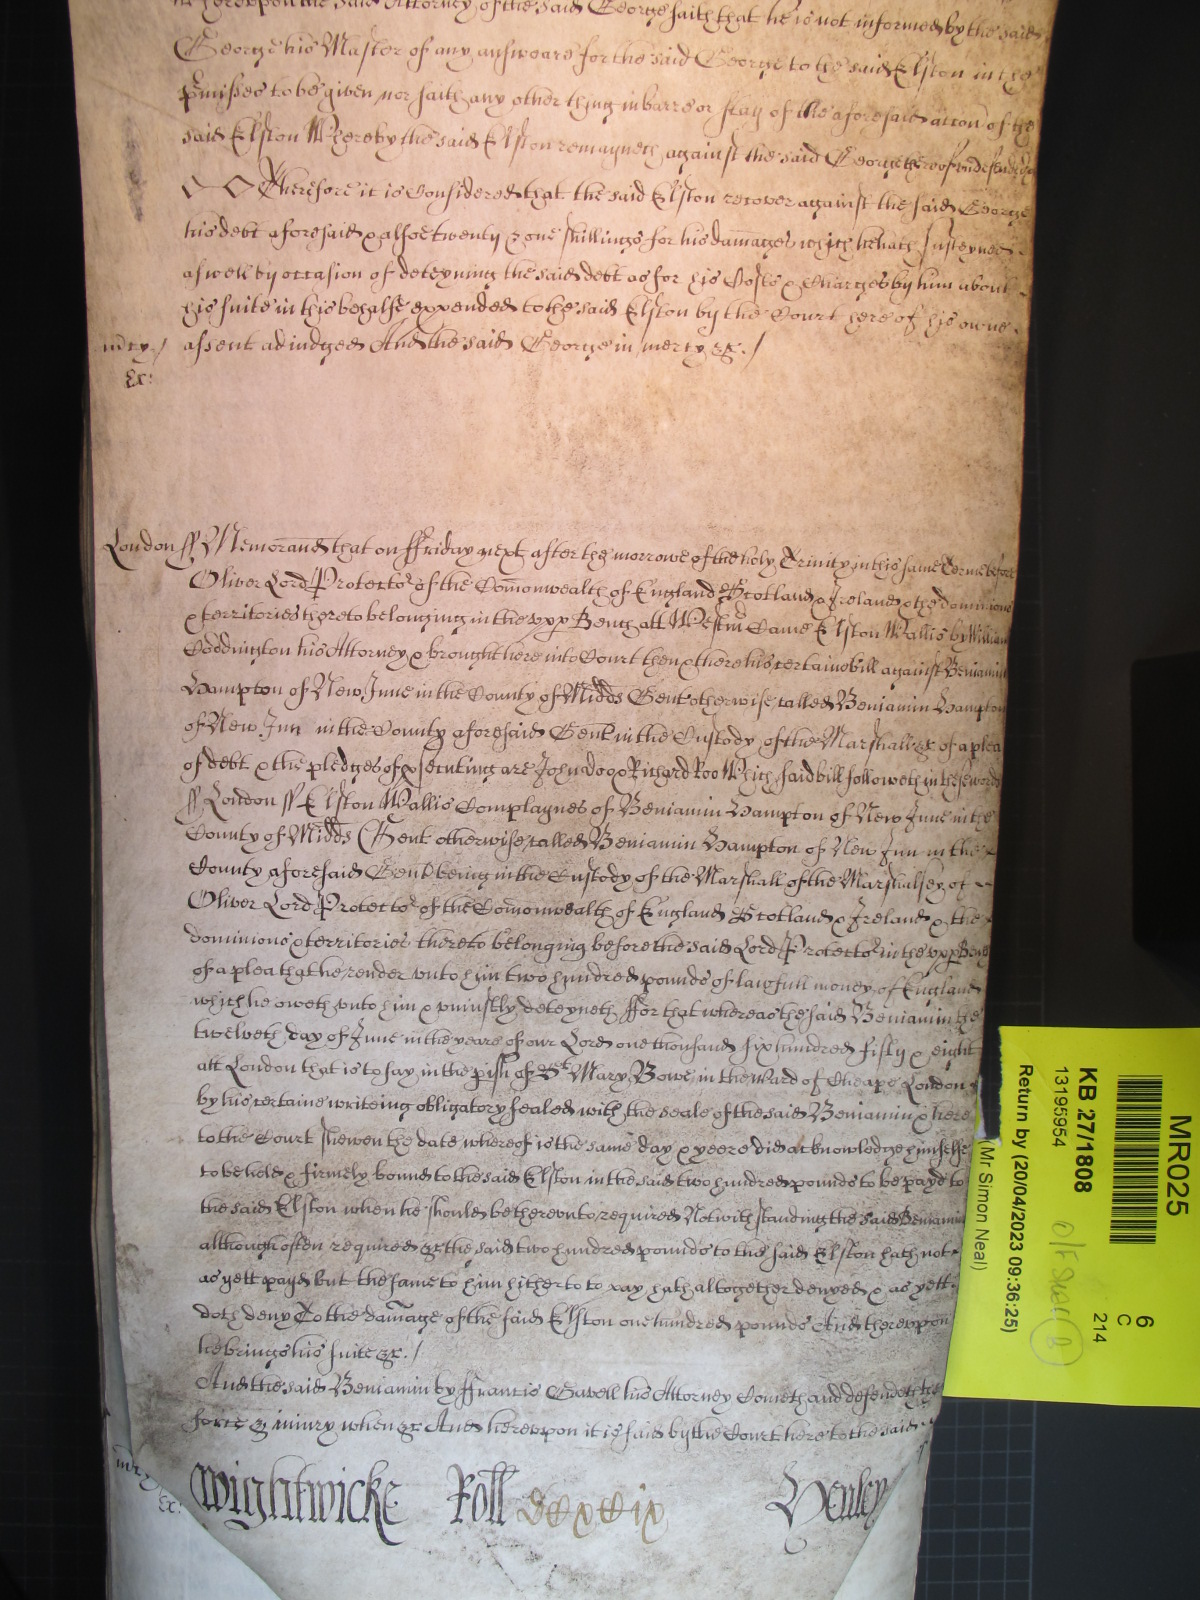 hereuppon the said Attorney of the said George saith that he is not informed by the said
George his Master of any answeare for the said George to the said Elston in the
pmisses to be given nor saith any other thing in barre or stay of the aforesaid accon of the
said Elston Whereby the said Elston remayneth against the said George thereof undefended
Therefore it is Considered that the said Elston recover against the said George
his debt aforesaid & alsoe twenty & one shillings for his damages which he hath susteyned
aswell by occasion of deteyning the said debt as for his Costs & Charges by him about
his suite in this behalfe expended to the said Elston by the Court here of his owne
mcy / assent adiudged And the said George in mercy &c. /
Ex:
London ss Memorand that on ffriday next after the morrowe of the holy Trinity in this same Terme before
Oliver Lord Protector of the Comonwealth of England Scotland & Ireland & the dominions
& territories thereto belonging in the upp Bench att Westm Came Elston Wallis by William
Coddington his Attorney & brought here into Court then & there his certaine bill against Beniamin
Hampton of New Inne in the County of Midds Gent otherwise called Beniamin Hampton
of New Inn in the County aforesaid Gent in the Custody of the Marshall &c of a plea
of debt & the pledges of psecuting are John Doo & Richard Roo Which said bill followeth in these words
ss London ss Elston Wallis Complaynes of Beniamin Hampton of New Inne in the
County of Midds Gent otherwise called Beniamin Hampton of New Inn in the
County aforesaid Gent being in the Custody of the Marshall of the Marshalsey of
Oliver Lord Protector of the Comonwealth of England Scotland & Ireland & the
dominions & territories thereto belonging before the said Lord Protector in the upp Bench
of a plea that he render unto him two hundred pounds of lawfull money of England
which he oweth unto him & uniustly deteyneth ffor that whereas the said Beniamin the
twelveth day of June in the yeare of our Lord one thousand six hundred fifty & eight
att London that is to say in the pish of St Mary Bowe in the Ward of Cheape London
by his certaine writeing obligatory sealed with the seale of the said Beniamin & here
to the Court shewen the date whereof is the same day & yeere did acknowledge himselfe
to be held & firmely bound to the said Elston in the said two hundred pounds to be payd to
the said Elston when he should be thereunto required Notwithstanding the said Beniamin
although often required &c the said two hundred pounds to the said Elston hath not
as yett payd but the same to him hitherto to pay hath altogether denyed & as yett
doth deny To the damage of the said Elston one hundred pounds And thereuppon
he brings his suite &c. /
And the said Beniamin by ffrancis Gawell his Attorney Cometh and defendeth the
force & iniury when &c And hereuppon it is said by the Court here to the said
Ex:
Wightwicke Roll Henley
MR025
6
C
214
KB 27/1808
13195954
(Mr Simon Neal)
Return by (20/04/2023 09:36:25)